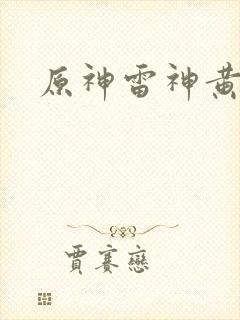 原神雷神黄
賈賽戀